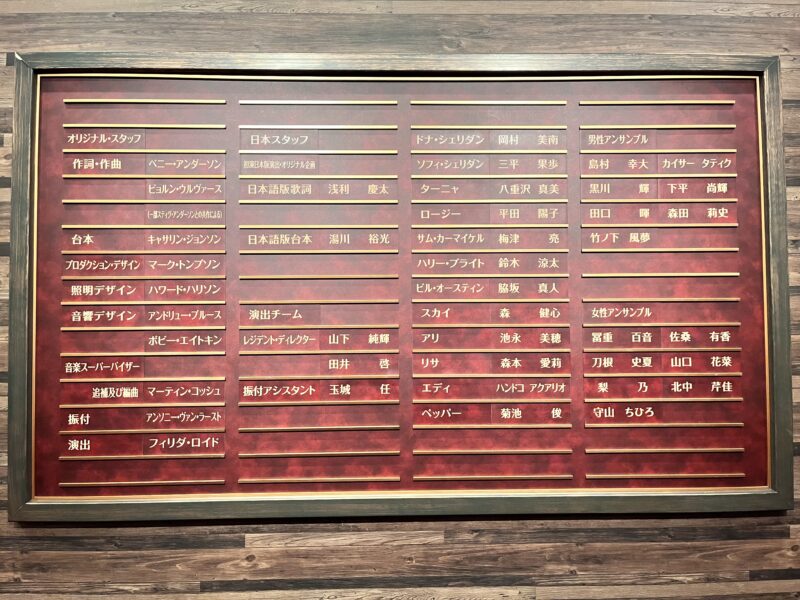 オリジナル・スタッフ
作詞・作曲 ベニー・アンダーソン
ビョルン・ウルヴァース
(一部スティグ・アンダーソンとの共作による)
台本 キャサリン・ジョンソン
プロダクション・デザイン マーク・トンプソン
照明デザイン ハワード・ハリソン
音響デザイン アンドリュー・ブルース
ボビー・エイトキン
音楽スーパーバイザー
追補及び編曲 マーティン・コッシュ
振付 アンソニー・ヴァン・ラースト
演出 フィリダ・ロイド
日本スタッフ
初期日本版演出・オリジナル企画
日本語版歌詞 浅利 慶太
日本語版台本 湯川 裕光
演出チーム
レジデント・ディレクター 山下 純輝
田井 啓
振付アシスタント 玉城 任
ドナ・シェリダン 岡村 美南
ソフィ・シェリダン 三平 果歩
ターニャ 八重沢 真美
ロージー 平田 陽子
サム・カーマイケル 梅津 亮
ハリー・ブライト 鈴木 涼太
ビル・オースティン 脇坂 真人
スカイ 森 健心
アリ 池永 美穂
リサ 森本 愛莉
エディ ハンドコ アクアリオ
ペッパー 菊池 俊
男性アンサンブル
島村 幸大 カイサー タティク
黒川 輝 下平 尚輝
田口 暉 森田 莉史
竹ノ下 風夢
女性アンサンブル
冨重 百音 佐桑 有香
刀根 史夏 山口 花菜
梨 乃 北中 芹佳
守山 ちひろ